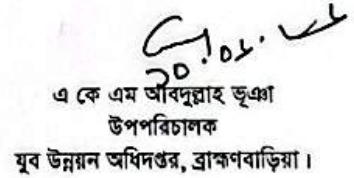 ২০.০১.২১
এ কে এম আবদুল্লাহ ভূঞা
উপপরিচালক
যুব উন্নয়ন অধিদপ্তর, ব্রাহ্মণবাড়িয়া।